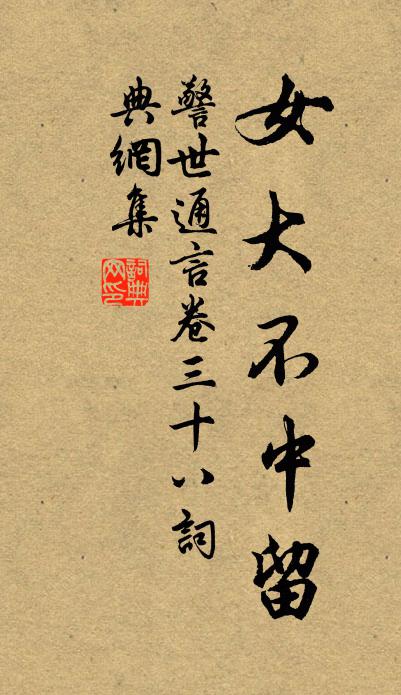 女大不中留
警世通言卷三十八詞
典網集
詞典
网印